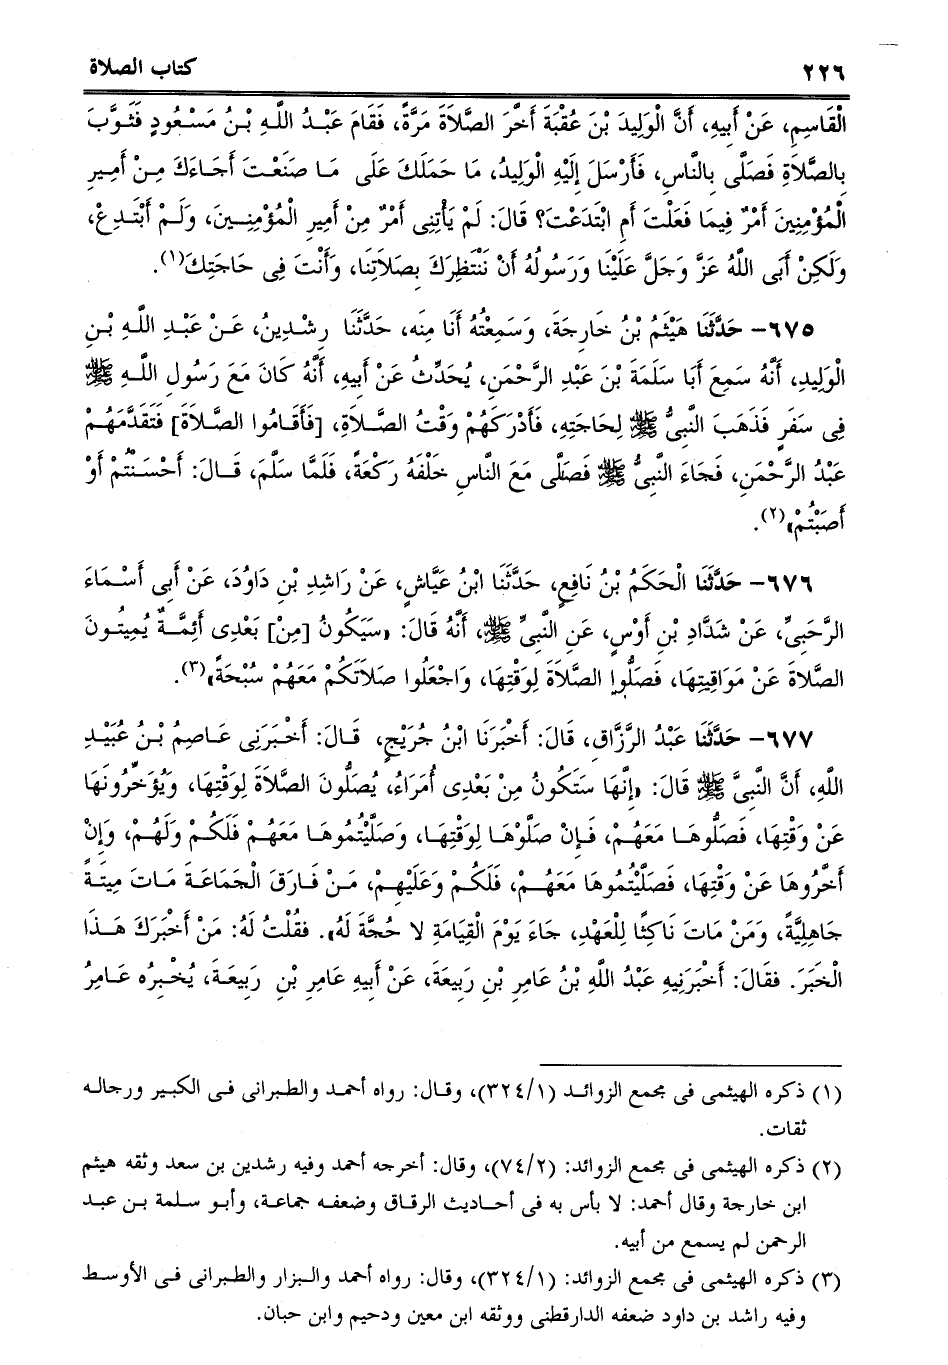 ٢٢٦ كتاب الصلاة
الْقَاسِمِ، عَنْ أَبِيهِ، أَنَّ الْوَلِيدَ بْنَ عُقْبَةَ أَخَّرَ الصَّلاَةَ مَرَّةً، فَقَامَ عَبْدُ اللَّهِ بْنُ مَسْعُودٍ فَثَوَّبَ
بِالصَّلاَةِ فَصَلَّى بِالنَّاسِ، فَأَرْسَلَ إِلَيْهِ الْوَلِيدُ، مَا حَمَلَكَ عَلَى مَا صَنَعْتَ أَجَاءَكَ مِنْ أَمِيرِ
الْمُؤْمِنِينَ أَمْرٌ فِيمَا فَعَلْتَ أَمِ ابْتَدَعْتَ؟ قَالَ: لَمْ يَأْتِنِى أَمْرٌ مِنْ أَمِيرِ الْمُؤْمِنِينَ، وَلَمْ أَبْتَدِعْ،
وَلَكِنْ أَبَى اللَّهُ عَزَّ وَجَلَّ عَلَيْنَا وَرَسُولُهُ أَنْ نَنْتَظِرَكَ بِصَلاَتِنَا، وَأَنْتَ فِى حَاجَتِكَ(١).
٦٧٥- حَدَّثَنَا هَيْثَمُ بْنُ خَارِجَةَ، وَسَمِعْتُهُ أَنَا مِنْه، حَدَّثَنَا رِشْدِينُ، عَنْ عَبْدِ اللَّهِ بْنِ
الْوَلِيدِ، أَنَّهُ سَمِعَ أَبَا سَلَمَةَ بْنَ عَبْدِ الرَّحْمَنِ، يُحَدِّثُ عَنْ أَبِيهِ، أَنَّهُ كَانَ مَعَ رَسُولِ اللَّهِ ﷺ
فِى سَفَرٍ فَذَهَبَ النَّبِىُّ ﷺ لِحَاجَتِهِ، فَأَدْرَكَهُمْ وَقْتُ الصَّلاَةِ، [فَأَقَامُوا الصَّلاَةَ] فَتَقَدَّمَهُمْ
عَبْدُ الرَّحْمَنِ، فَجَاءَ النَّبِىُّ ﷺ فَصَلَّى مَعَ النَّاسِ خَلْفَهُ رَكْعَةً، فَلَمَّا سَلَّمَ، قَالَ: أَحْسَنْتُمْ أَوْ
أَصَبْتُمْ»(٢).
٦٧٦- حَدَّثَنَا الْحَكَمُ بْنُ نَافِعٍ، حَدَّثَنَا ابْنُ عَيَّاشٍ، عَنْ رَاشِدِ بْنِ دَاوُدَ، عَنْ أَبِى أَسْمَاءَ
الرَّحَبِىِّ، عَنْ شَدَّادِ بْنِ أَوْسٍ، عَنِ النَّبِىِّ ﷺ، أَنَّهُ قَالَ: «سَيَكُونُ [مِنْ] بَعْدِى أَئِمَّةٌ يُمِيتُونَ
الصَّلاةَ عَنْ مَوَاقِيتِهَا، فَصَلُّوا الصَّلاَةَ لِوَقْتِهَا، وَاجْعَلُوا صَلاَتَكُمْ مَعَهُمْ سُبْحَةً»(٣).
٦٧٧- حَدَّثَنَا عَبْدُ الرَّزَّاقِ، قَالَ: أَخْبَرَنَا ابْنُ جُرَيْجٍ، قَالَ: أَخْبَرَنِى عَاصِمُ بْنُ عُبَيْدِ
اللَّهِ، أَنَّ النَّبِىَّ ﷺ قَالَ: «إِنَّهَا سَتَكُونُ مِنْ بَعْدِى أُمَرَاءُ، يُصَلُّونَ الصَّلاَةَ لِوَقْتِهَا، وَيُؤَخِّرُونَهَا
عَنْ وَقْتِهَا، فَصَلُّوهَا مَعَهُمْ، فَإِنْ صَلَّوْهَا لِوَقْتِهَا، وَصَلَّيْتُمُوهَا مَعَهُمْ فَلَكُمْ وَلَهُمْ، وَإِنْ
أَخَّرُوهَا عَنْ وَقْتِهَا، فَصَلَّيْتُمُوهَا مَعَهُمْ، فَلَكُمْ وَعَلَيْهِمْ، مَنْ فَارَقَ الْجَمَاعَةَ مَاتَ مِيتَةً
جَاهِلِيَّةً، وَمَنْ مَاتَ نَاكِثًا لِلْعَهْدِ، جَاءَ يَوْمَ الْقِيَامَةِ لا حُجَّةَ لَهُ». فقُلْتُ لَهُ: مَنْ أَخْبَرَكَ هَذَا
الْخَبَرَ. فقَالَ: أَخْبَرَنِيهِ عَبْدُ اللَّهِ بْنُ عَامِرِ بْنِ رَبِيعَةَ، عَنْ أَبِيهِ عَامِرِ بْنِ رَبِيعَةَ، يُخْبِرُه عَامِرُ
(١) ذكره الهيثمى فى مجمع الزوائد (٣٢٤/١)، وقال: رواه أحمد والطبرانى فى الكبير ورجاله
ثقات.
(٢) ذكره الهيثمى فى مجمع الزوائد: (٧٤/٢)، وقال: أخرجه أحمد وفيه رشدين بن سعد وثقه هيثم
ابن خارجة وقال أحمد: لا بأس به فى أحاديث الرقاق وضعفه جماعة، وأبو سلمة بن عبد
الرحمن لم يسمع من أبيه.
(٣) ذكره الهيثمى فى مجمع الزوائد: (٣٢٤/١)، وقال: رواه أحمد والبزار والطبرانى فى الأوسط
وفيه راشد بن داود ضعفه الدارقطنى ووثقه ابن معين ودحيم وابن حبان.